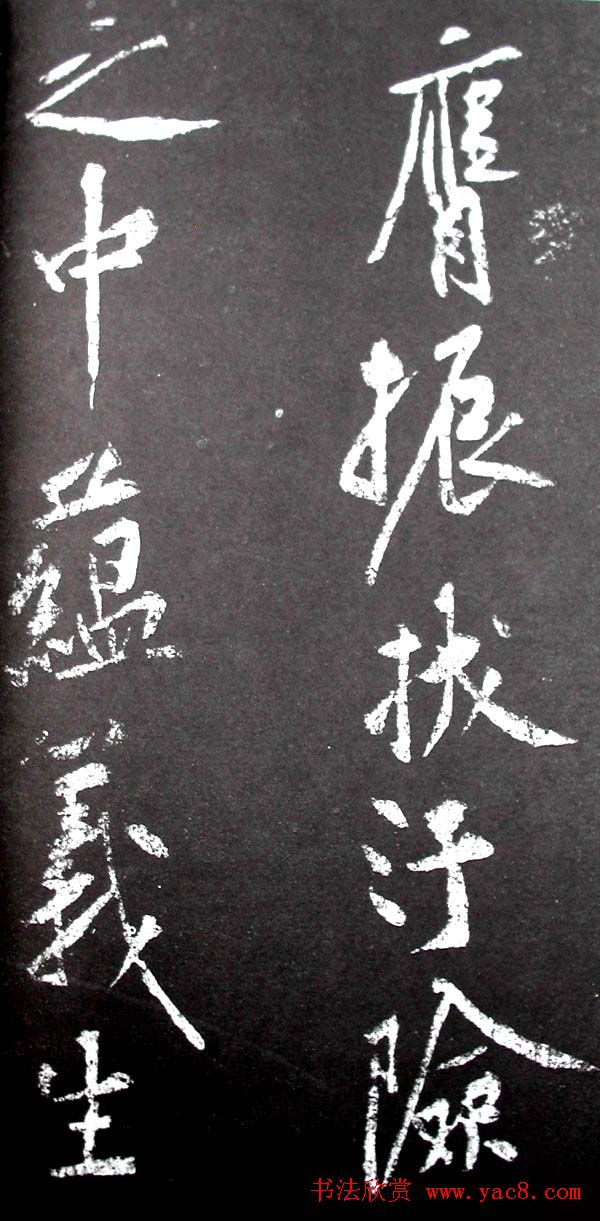 膺振拔汙險
之中蘊義生
书法欣赏 www.yac8.com